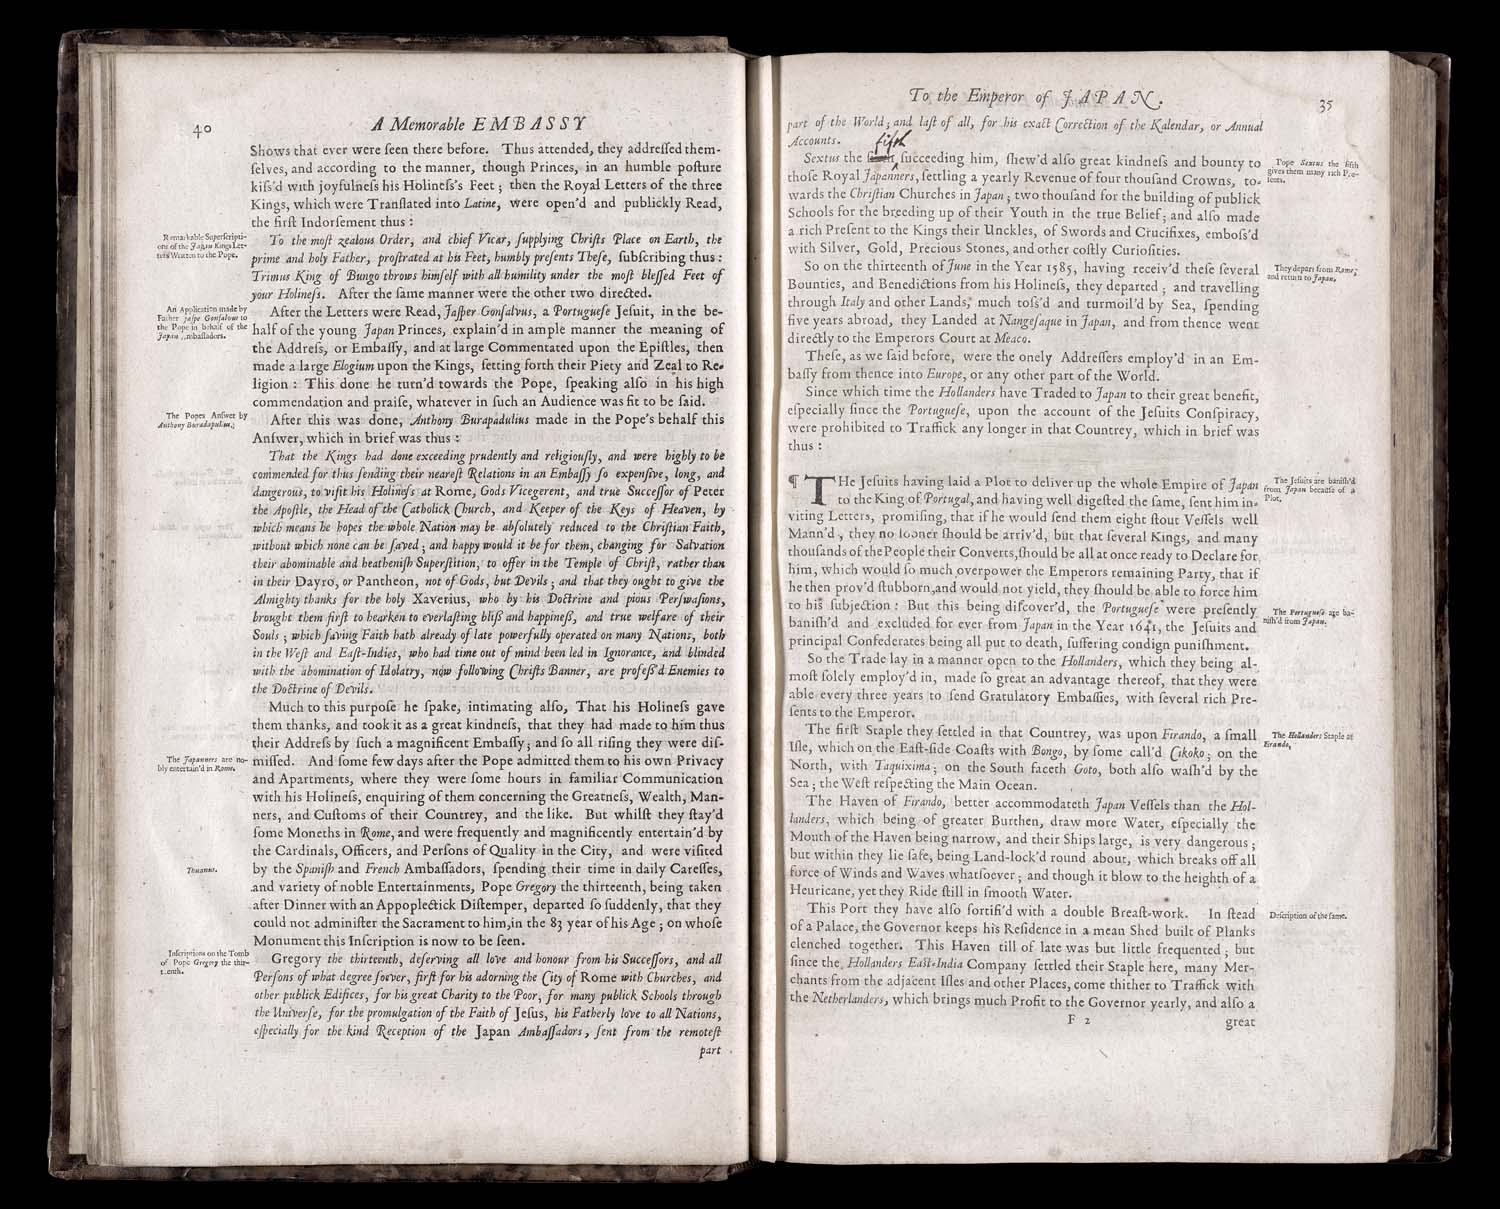 40
A Memorable EMBASSY
Shows that ever were ſeen there before. Thus attended, they addreſſed them-
ſelves, and according to the manner, though Princes, in an humble poſture
kiſs'd with joyfulneſs his Holineſs's Feet ; then the Royal Letters of the three
Kings, which were Tranſlated into Latine, were open'd and publickly Read,
the firſt Indorſement thus :
Remarkable Superſcripti-
ons of the Japan Kings Let-
ters Written to the Pope.
To the moſt zealous Order, and chief Vicar, ſupplying Chriſts Place on Earth, the
prime and holy Father, proſtrated at his Feet, humbly preſents Theſe, ſubſcribing thus :
Trimus King of Bungo throws himſelf with all humility under the moſt bleſſed Feet of
your Holineſs. After the ſame manner were the other two directed.
An Application made by
Father Jaſpe Gonſalous to
the Pope in behalf of the
Japan Ambaſſadors.
After the Letters were Read, Jaſper Gonſalvus, a Portugueſe Jeſuit, in the be-
half of the young Japan Princes, explain'd in ample manner the meaning of
the Addreſs, or Embaſſy, and at large Commentated upon the Epiſtles, then
made a large Elogium upon the Kings, ſetting forth their Piety and Zeal to Re-
ligion : This done he turn'd towards the Pope, ſpeaking alſo in his high
commendation and praiſe, whatever in ſuch an Audience was fit to be ſaid.
The Popes Anſwer by
Anthony Buradapulus.
After this was done, Anthony Burapadulius made in the Pope's behalf this
Anſwer, which in brief was thus :
That the Kings had done exceeding prudently and religiouſly, and were highly to be
commended for thus ſending their neareſt Relations in an Embaſſy ſo expenſive, long, and
dangerous, to viſit his Holineſs at Rome, Gods Vicegerent, and true Succeſſor of Peter
the Apoſtle, the Head of the Catholick Church, and Keeper of the Keys of Heaven, by
which means he hopes the whole Nation may be abſolutely reduced to the Chriſtian Faith,
without which none can be ſaved ; and happy would it be for them, changing for Salvation
their abominable and heatheniſh Superſtition, to offer in the Temple of Chriſt, rather than
in their Dayro, or Pantheon, not of Gods, but Devils ; and that they ought to give the
Almighty thanks for the holy Xaverius, who by his Doctrine and pious Perſwaſions,
brought them firſt to hearken to everlaſting bliſs and happineſs, and true welfare of their
Souls ; which ſaving Faith hath already of late powerfully operated on many Nations, both
in the Weſt and Eaſt-Indies, who had time out of mind been led in Ignorance, and blinded
with the abomination of Idolatry, now following Chriſts Banner, are profeſs'd Enemies to
the Doctrine of Devils.
Much to this purpoſe he ſpake, intimating alſo, That his Holineſs gave
them thanks, and took it as a great kindneſs, that they had made to him thus
their Addreſs by ſuch a magnificent Embaſſy ; and ſo all riſing they were diſ-
The Japanners are no-
bly entertain'd in Rome.
miſſed. And ſome few days after the Pope admitted them to his own Privacy
and Apartments, where they were ſome hours in familiar Communication
with his Holineſs, enquiring of them concerning the Greatneſs, Wealth, Man-
ners, and Cuſtoms of their Countrey, and the like. But whilſt they ſtay'd
ſome Moneths in Rome, and were frequently and magnificently entertain'd by
the Cardinals, Officers, and Perſons of Quality in the City, and were viſited
Thuanus.
by the Spaniſh and French Ambaſſadors, ſpending their time in daily Careſſes,
and variety of noble Entertainments, Pope Gregory the thirteenth, being taken
after Dinner with an Appoplectick Diſtemper, departed ſo ſuddenly, that they
could not adminiſter the Sacrament to him, in the 83 year of his Age ; on whoſe
Monument this Inſcription is now to be ſeen.
Inſcriptions on the Tomb
of Pope Gregory the thir-
teenth.
Gregory the thirteenth, deſerving all love and honour from his Succeſſors, and all
Perſons of what degree ſoever, firſt for his adorning the City of Rome with Churches, and
other publick Edifices, for his great Charity to the Poor, for many publick Schools through
the Univerſe, for the promulgation of the Faith of Jeſus, his Fatherly love to all Nations,
eſpecially for the kind Reception of the Japan Ambaſſadors, ſent from the remoteſt
part
To the Emperor of JAPAN.
35
part of the World ; and laſt of all, for his exact Correction of the Kalendar, or Annual
Accounts.
fifth
Sextus the ſucceeding him, ſhew'd alſo great kindneſs and bounty to
thoſe Royal Japanners, ſettling a yearly Revenue of four thouſand Crowns, to-
wards the Chriſtian Churches in Japan ; two thouſand for the building of publick
Schools for the breeding up of their Youth in the true Belief ; and alſo made
a rich Preſent to the Kings their Unckles, of Swords and Crucifixes, emboſs'd
with Silver, Gold, Precious Stones, and other coſtly Curioſities.
Pope Sextus the fifth
gives them many rich Pre-
ſents.
So on the thirteenth of June in the Year 1585, having receiv'd theſe ſeveral
Bounties, and Benedictions from his Holineſs, they departed ; and travelling
through Italy and other Lands, much toſs'd and turmoil'd by Sea, ſpending
five years abroad, they Landed at Nangeſaque in Japan, and from thence went
directly to the Emperors Court at Meaco.
They depart from Rome,
and return to Japan.
Theſe, as we ſaid before, were the onely Addreſſers employ'd in an Em-
baſſy from thence into Europe, or any other part of the World.
Since which time the Hollanders have Traded to Japan to their great benefit,
eſpecially ſince the Portugueſe, upon the account of the Jeſuits Conſpiracy,
were prohibited to Traffick any longer in that Countrey, which in brief was
thus :
¶ THe Jeſuits having laid a Plot to deliver up the whole Empire of Japan
to the King of Portugal, and having well digeſted the ſame, ſent him in-
viting Letters, promiſing, that if he would ſend them eight ſtout Veſſels well
Mann'd, they no ſooner ſhould be arriv'd, but that ſeveral Kings, and many
thouſands of the People their Converts, ſhould be all at once ready to Declare for
him, which would ſo much overpower the Emperors remaining Party, that if
he then prov'd ſtubborn, and would not yield, they ſhould be able to force him
to his ſubjection : But this being diſcover'd, the Portugueſe were preſently
baniſh'd and excluded for ever from Japan in the Year 1641, the Jeſuits and
principal Confederates being all put to death, ſuffering condign puniſhment.
The Jeſuits are baniſh'd
from Japan becauſe of a
Plot.
The Portugueſe are ba-
niſh'd from Japan.
So the Trade lay in a manner open to the Hollanders, which they being al-
moſt ſolely employ'd in, made ſo great an advantage thereof, that they were
able every three years to ſend Gratulatory Embaſſies, with ſeveral rich Pre-
ſents to the Emperor.
The firſt Staple they ſettled in that Countrey, was upon Firando, a ſmall
Iſle, which on the Eaſt-ſide Coaſts with Bongo, by ſome call'd Cikoko ; on the
North, with Taquixima ; on the South faceth Goto, both alſo waſh'd by the
Sea ; the Weſt reſpecting the Main Ocean.
The Hollanders Staple at
Firando.
The Haven of Firando, better accommodateth Japan Veſſels than the Hol-
landers, which being of greater Burthen, draw more Water, eſpecially the
Mouth of the Haven being narrow, and their Ships large, is very dangerous ;
but within they lie ſafe, being Land-lock'd round about, which breaks off all
force of Winds and Waves whatſoever ; and though it blow to the heighth of a
Heuricane, yet they Ride ſtill in ſmooth Water.
This Port they have alſo fortifi'd with a double Breaſt-work. In ſtead
of a Palace, the Governor keeps his Reſidence in a mean Shed built of Planks
clenched together. This Haven till of late was but little frequented ; but
ſince the Hollanders Eaſt-India Company ſettled their Staple here, many Mer-
chants from the adjacent Iſles and other Places, come thither to Traffick with
the Netherlanders, which brings much Profit to the Governor yearly, and alſo a
Deſcription of the ſame.
F 2
great